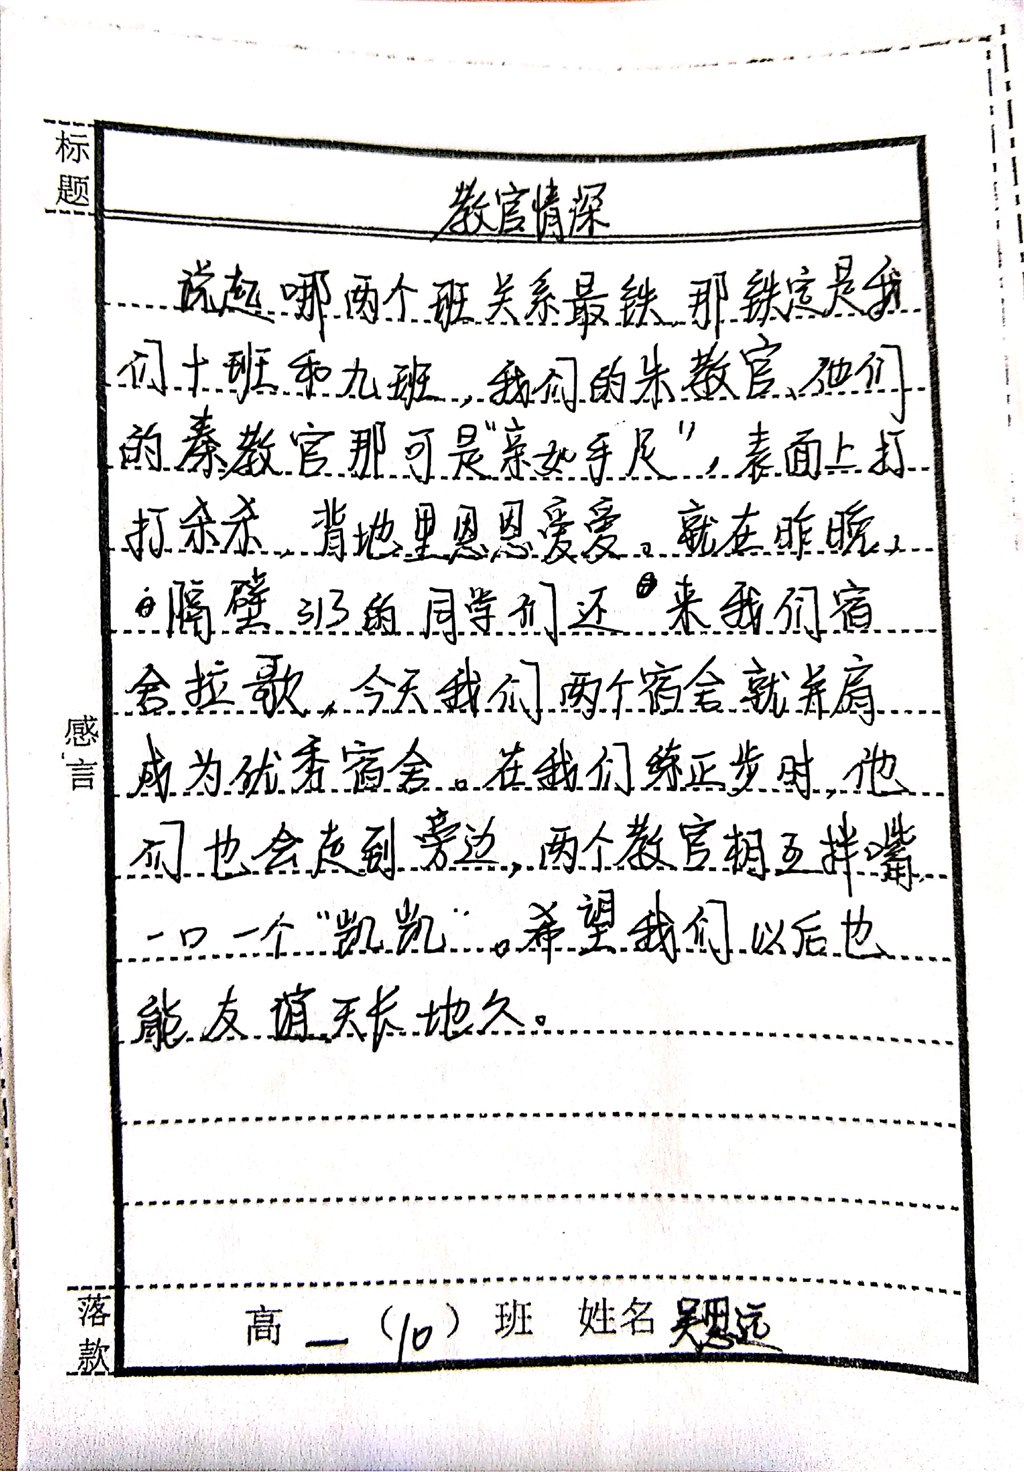 标题
教官情深
说起哪两个班关系最铁,那铁定是我
们十班和九班,我们的朱教官、他们
的秦教官那可是“亲如手足”,表面上打
打杀杀,背地里恩恩爱爱。就在昨晚,
隔壁313的同学们还来我们宿
舍拉歌,今天我们两个宿舍就并肩
成为优秀宿舍。在我们练正步时,他
们也会走到旁边,两个教官相互拌嘴,
一口一个“凯凯”。希望我们以后也
能友谊天长地久。
感言
落款
高一(10)班 姓名吴思远